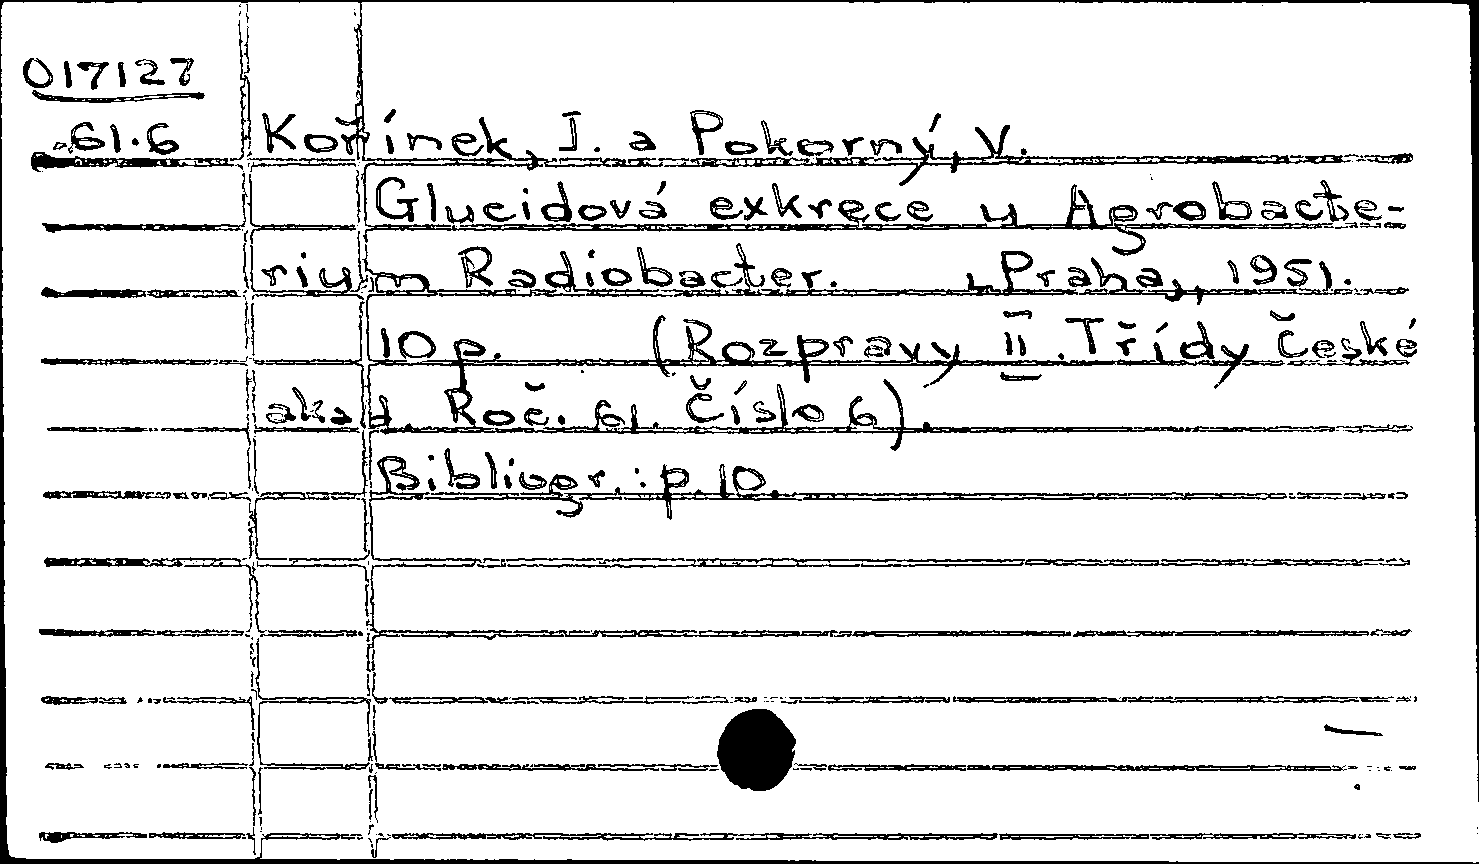 017127
61.6 Kořínek, I. a Pokorný, V.
Glucidová exkrece u Agrobacte-
rium Radiobacter. [Praha], 1951.
10 p. (Rozpravy II. Třídy České
akad. Roč. 61. Číslo 6).
Bibliogr.: p. 10.